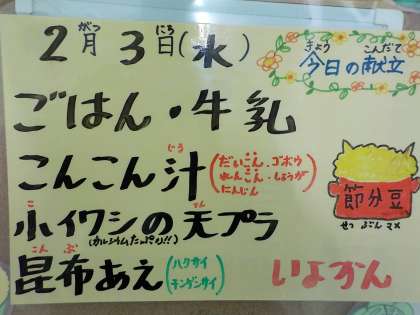 2月3日(水)
がつ にち
きょう こんだて
今日の献立
ごはん・牛乳
じる
こんこん汁
(だいこん・ゴボウ
れんこん・しょうが
にんじん)
こ てん
小イワシの天プラ
(カルシウムたっぷり!!)
こんぶ
昆布あえ
(ハクサイ
チンゲンサイ)
節分豆
せつ ぶん マメ
いよかん